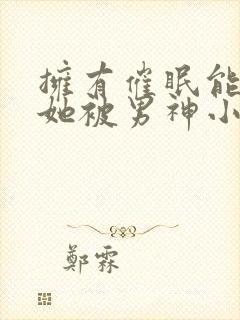 擁有催眠能
她被男神小
鄭霖